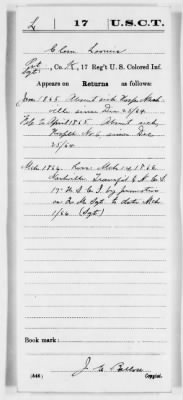 L 17 U.S.C.T.
Pvt
Sgt , Co. K, 17 Reg't U. S. Colored Inf.
Appears on Returns as follows:
Jany 1865. Absent sick Hosp. Nash-
ville since Dec 25/64
Feb to April 1865. Absent sick
Hospt No 6 since Dec
25/64
Mch 1866. Mch 14, 1866
Nashville Transf'd to N. C. S.
17" U. S. C. I. by promotion
to Q. M. Sgt to date Mch
1/66 (Sgt)
Book mark:
(446) Copyist.